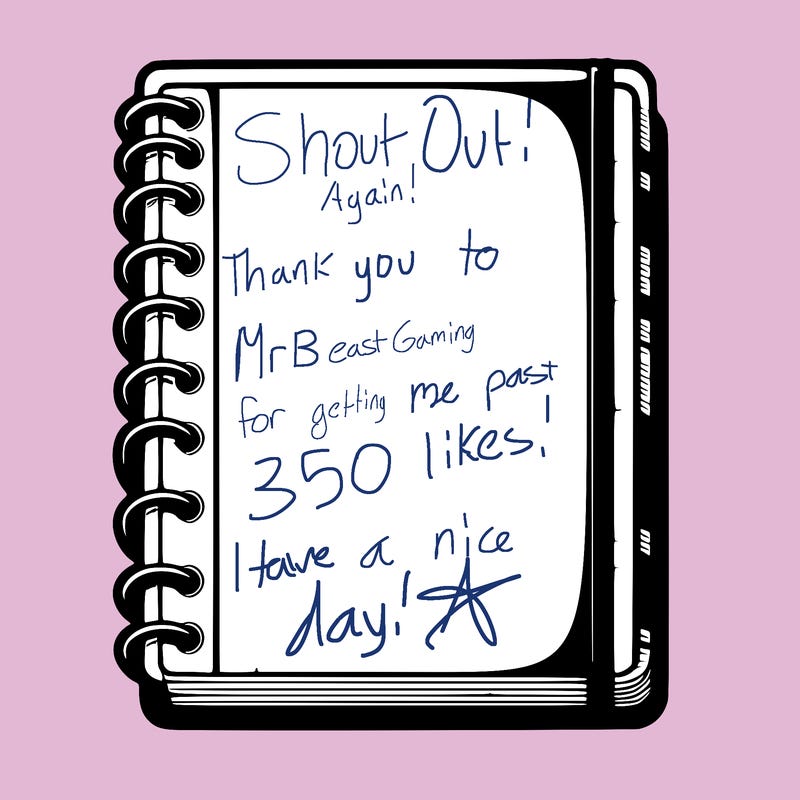 Shout Out!
Again!
Thank you to
MrBeast Gaming
for getting me past
350 likes!
Have a nice
day!